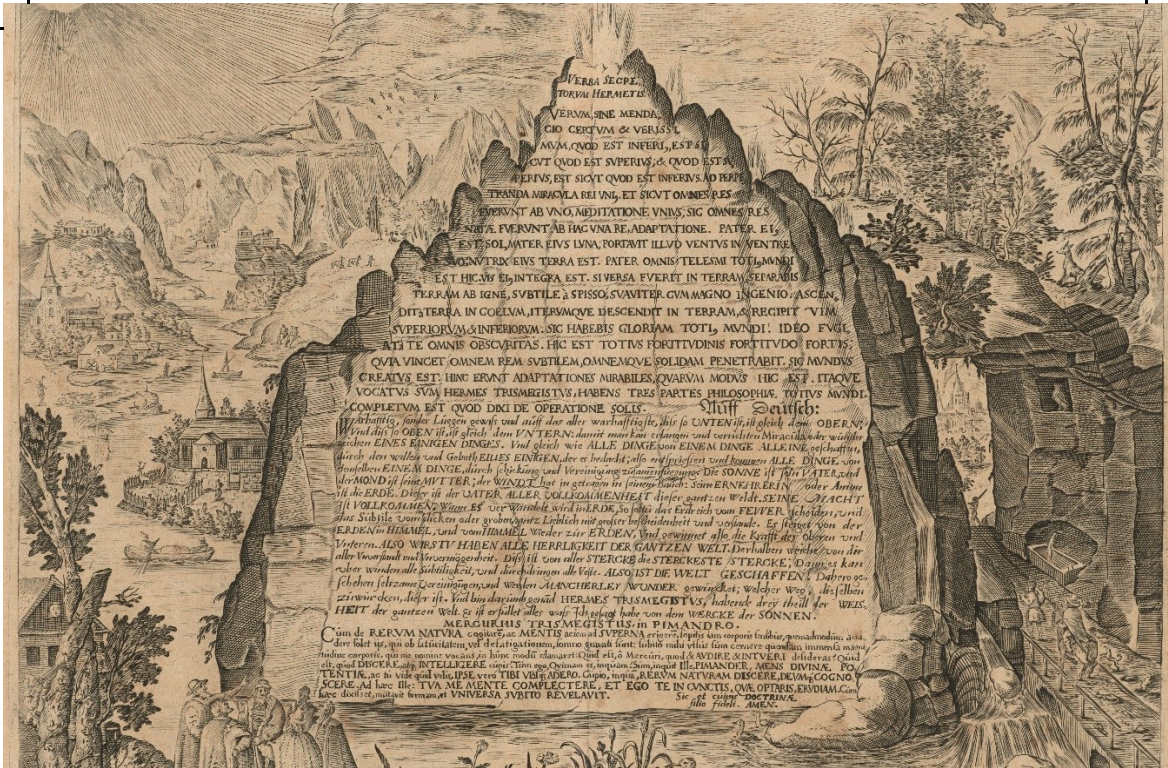 VERBA SECRE,
TORUM HERMETIS.
VERUM, SINE MENDA,
CIO CERTVM & VERISSI,
MVM, QVOD EST INFERI,, EST SI,
CVT QVOD EST SVPERIVS, & QVOD EST SV,
PERIVS, EST SICVT QVOD EST INFERIVS. AD PERPE
TRANDA MIRACVLA REI VNI,, ET SICVT OMNES RES
FVERVNT AB VNO, MEDITATIONE VNIVS, SIC OMNES RES
NATÆ FVERVNT AB HAC VNA RE, ADAPTATIONE. PATER EI,
EST SOL, MATER EIVS LVNA; PORTAVIT ILLVD VENTVS IN VENTRE
SVO; NVTRIX EIVS TERRA EST. PATER OMNIS TELESMI TOTI, MVNDI
EST HIC. VIS EI, INTEGRA EST. SI VERSA FVERIT IN TERRAM, SEPARABIS
TERRAM AB IGNE, SVBTILE à SPISSO, SVAVITER CVM MAGNO INGENIO. ASCEN,
DIT à TERRA IN COELVM, ITERVMQVE DESCENDIT IN TERRAM, & RECIPIT VIM
SVPERIORVM & INFERIORVM. SIC HABEBIS GLORIAM TOTI, MVNDI. IDEO FVGI
AT à TE OMNIS OBSCVRITAS. HIC EST TOTIVS FORTITVDINIS FORTITVDO FORTIS:
QVIA VINCET OMNEM REM SVBTILEM, OMNEMQVE SOLIDAM PENETRABIT. SIC MVNDVS
CREATVS EST. HINC ERVNT ADAPTATIONES MIRABILES, QVARVM MODVS HIC EST. ITAQVE
VOCATVS SVM HERMES TRISMEGISTVS, HABENS TRES PARTES PHILOSOPHIÆ TOTIVS MVNDI.
COMPLETVM EST QVOD DIXI DE OPERATIONE SOLIS. Auff Deutsch:
Warhafftig, sonder Luegen gewiß und auff das aller warhafftigste, diß so UNTEN ist, ist gleich dem OBERN:
Und diß so OBEN ist, ist gleich dem UNTERN: damit man kan erlangen und verrichten Miracula oder wunder
zeichen EINES EINIGEN DINGES. Und gleich wie ALLE DINGE von EINEM DINGE ALLEINE geschaffen,
durch den willen und Geboth EINES EINIGEN, der es bedacht; also entspriessen und kommen ALLE DINGE von
demselben EINEM DINGE, durch schickung und Vereinigung zusammenfuegung. Die SONNE ist sein VATER, und
der MOND ist seine MUTTER; der WINDT hat in getragen in seinem Bauch: Seine ERNEHRERIN oder Amme
ist die ERDE. Dieser ist der VATER ALLER VOLLKOMMENHEIT dieser gantzen Weldt. SEINE MACHT
ist VOLLKOMMEN, Wann ES verwandelt wird in ERDE, So soltu das Erdreich vom FEWER scheiden, und
das Subtile vom dicken oder groben, gantz Lieblich mit grosser bescheidenheit und verstande. Es steiget von der
ERDEN in HIMMEL, und vom HIMMEL wieder zur ERDEN, Und gewinnet also die Krafft der oberen und
Unteren. ALSO WIRSTU HABEN ALLE HERRLIGKEIT DER GANTZEN WELT. Derhalben weiche von dir
aller Unverstandt und Unvermögenheit. Diß ist von aller STERCKE die STERCKESTE STERCKE, Dann es kan
uber winden alle Subtiligkeit, und durchdringen alle Veste. ALSO IST DIE WELT GESCHAFFEN. Dahero ge,
schehen seltzame Vereinigungen, und Werden MANCHERLEI WUNDER gewürcket; Welcher Weg, dieselben
zu würcken, dieser ist. Und bin darumb genand HERMES TRISMEGISTUS, habende drey theill der WEIS,
HEIT der gantzen Welt. Es ist erfüllet alles waß Ich gesagt habe von dem WERCKE der SONNEN.
MERCURIUS TRISMEGISTUS, in PIMANDRO.
Cum de RERUM NATURA cogitarem, ac MENTIS aciem ad SUPERNA erigerem, sopitis iam corporis sensibus, quemadmodum acci,
dere solet iis, qui ob saturitatem, vel defatigationem, somno gravati sunt: subito mihi visus sum cernere quendam immensa magni,
tudine corporis, qui me nomine vocans, in hunc modum clamaret: Quid est, ô Mercuri, quod & AUDIRE, & INTUERI desideras? Quid
est, quod DISCERE, atque INTELLIGERE cupis? Tum ego, Quisnam es, inquam? Sum, inquit Ille, PIMANDER, MENS DIVINÆ PO,
TENTIÆ, ac tu vide quid velis, IPSE vero TIBI UBIque ADERO. Cupio, inquam, RERUM NATURAM DISCERE, DEUMque COGNO,
SCERE. Ad hæc Ille: TUA ME MENTE COMPLECTERE, ET EGO TE IN CUNCTIS, QUÆ OPTARIS, ERUDIAM. Cum
hæc dixisset, mutavit formam, et UNIVERSA SUBITO REVELAVIT. Sic et cuique DOCTRINÆ
filio fideli. AMEN.